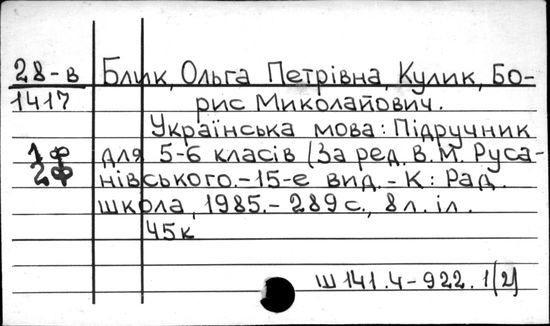 28-в Блик, Ольга Петрівна, Кулик, Бо-
1417 рис Миколайович.
Українська мова: Підручник
1ф для 5-6 класів (За ред. В. М. Руса-
2ф нівського.-15-е вид.-К: Рад.
школа, 1985.- 289 с., 8 л. іл.
45к
Ш141.4-922.1(2)